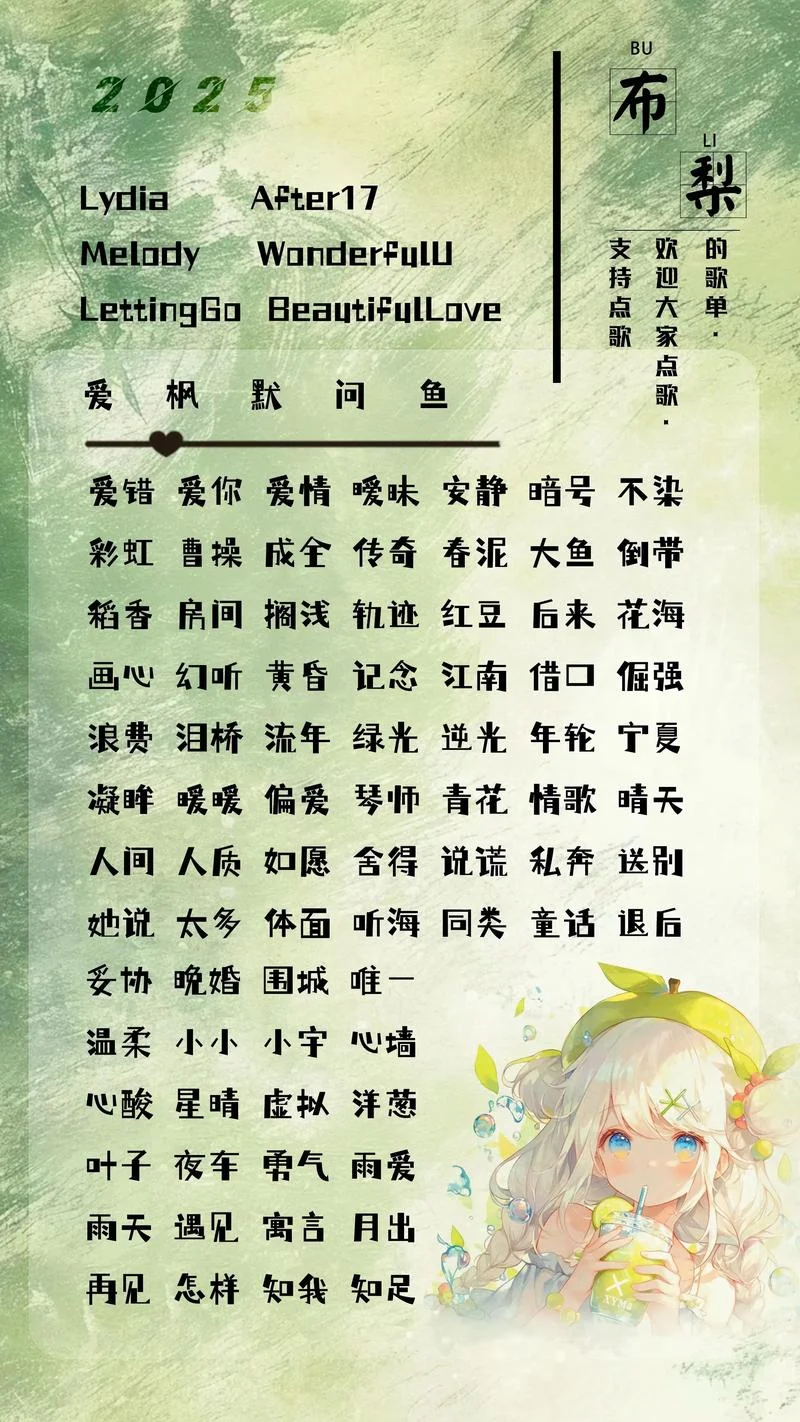 2025
BU
布
LI
梨
的歌单·
欢迎大家点歌·
支持点歌
Lydia After17
Melody WonderfulU
LettingGo BeautifulLove
爱 枫 默 问 鱼
爱错 爱你 爱情 暧昧 安静 暗号 不染
彩虹 曹操 成全 传奇 春泥 大鱼 倒带
稻香 房间 搁浅 轨迹 红豆 后来 花海
画心 幻听 黄昏 记念 江南 借口 倔强
浪费 泪桥 流年 绿光 逆光 年轮 宁夏
凝眸 暖暖 偏爱 琴师 青花 情歌 晴天
人间 人质 如愿 舍得 说谎 私奔 送别
她说 太多 体面 听海 同类 童话 退后
妥协 晚婚 围城 唯一
温柔 小小 小宇 心墙
心酸 星晴 虚拟 洋葱
叶子 夜车 勇气 雨爱
雨天 遇见 寓言 月出
再见 怎样 知我 知足